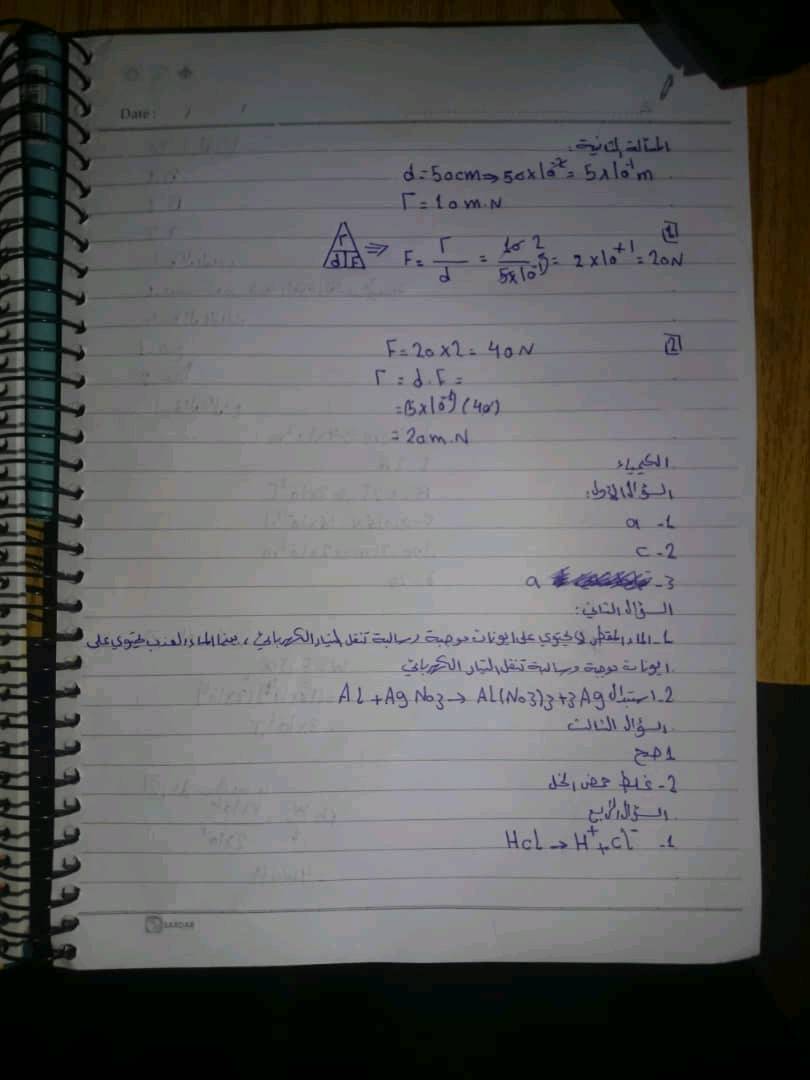 Date: / /
المسألة الثانية:
d = 50cm ⇒ 50x10⁻² = 5x10⁻¹ m
Γ = 10 m.N
1
Γ d F ⇒ F = Γ / d = 10 / 5x10⁻¹ = 2 x 10⁺¹ = 20N
2
F = 20 x 2 = 40N
Γ = d . F =
= (5x10⁻¹) (40)
= 20 m.N
الكيمياء
السؤال الأول:
1- a
2- c
3- a
السؤال الثاني:
1- الماء المقطر لا يحتوي على ايونات موجبة وسالبة تنقل التيار الكهربائي، بينما الماء العذب يحتوي على
ايونات موجبة وسالبة تنقل التيار الكهربائي
2- استبدال AL + Ag No3 → AL(No3)3 + 3Ag
السؤال الثالث
1 صح
2- غلط حمض الخل
السؤال الرابع
1- HCl → H⁺ + Cl⁻
SARDAR